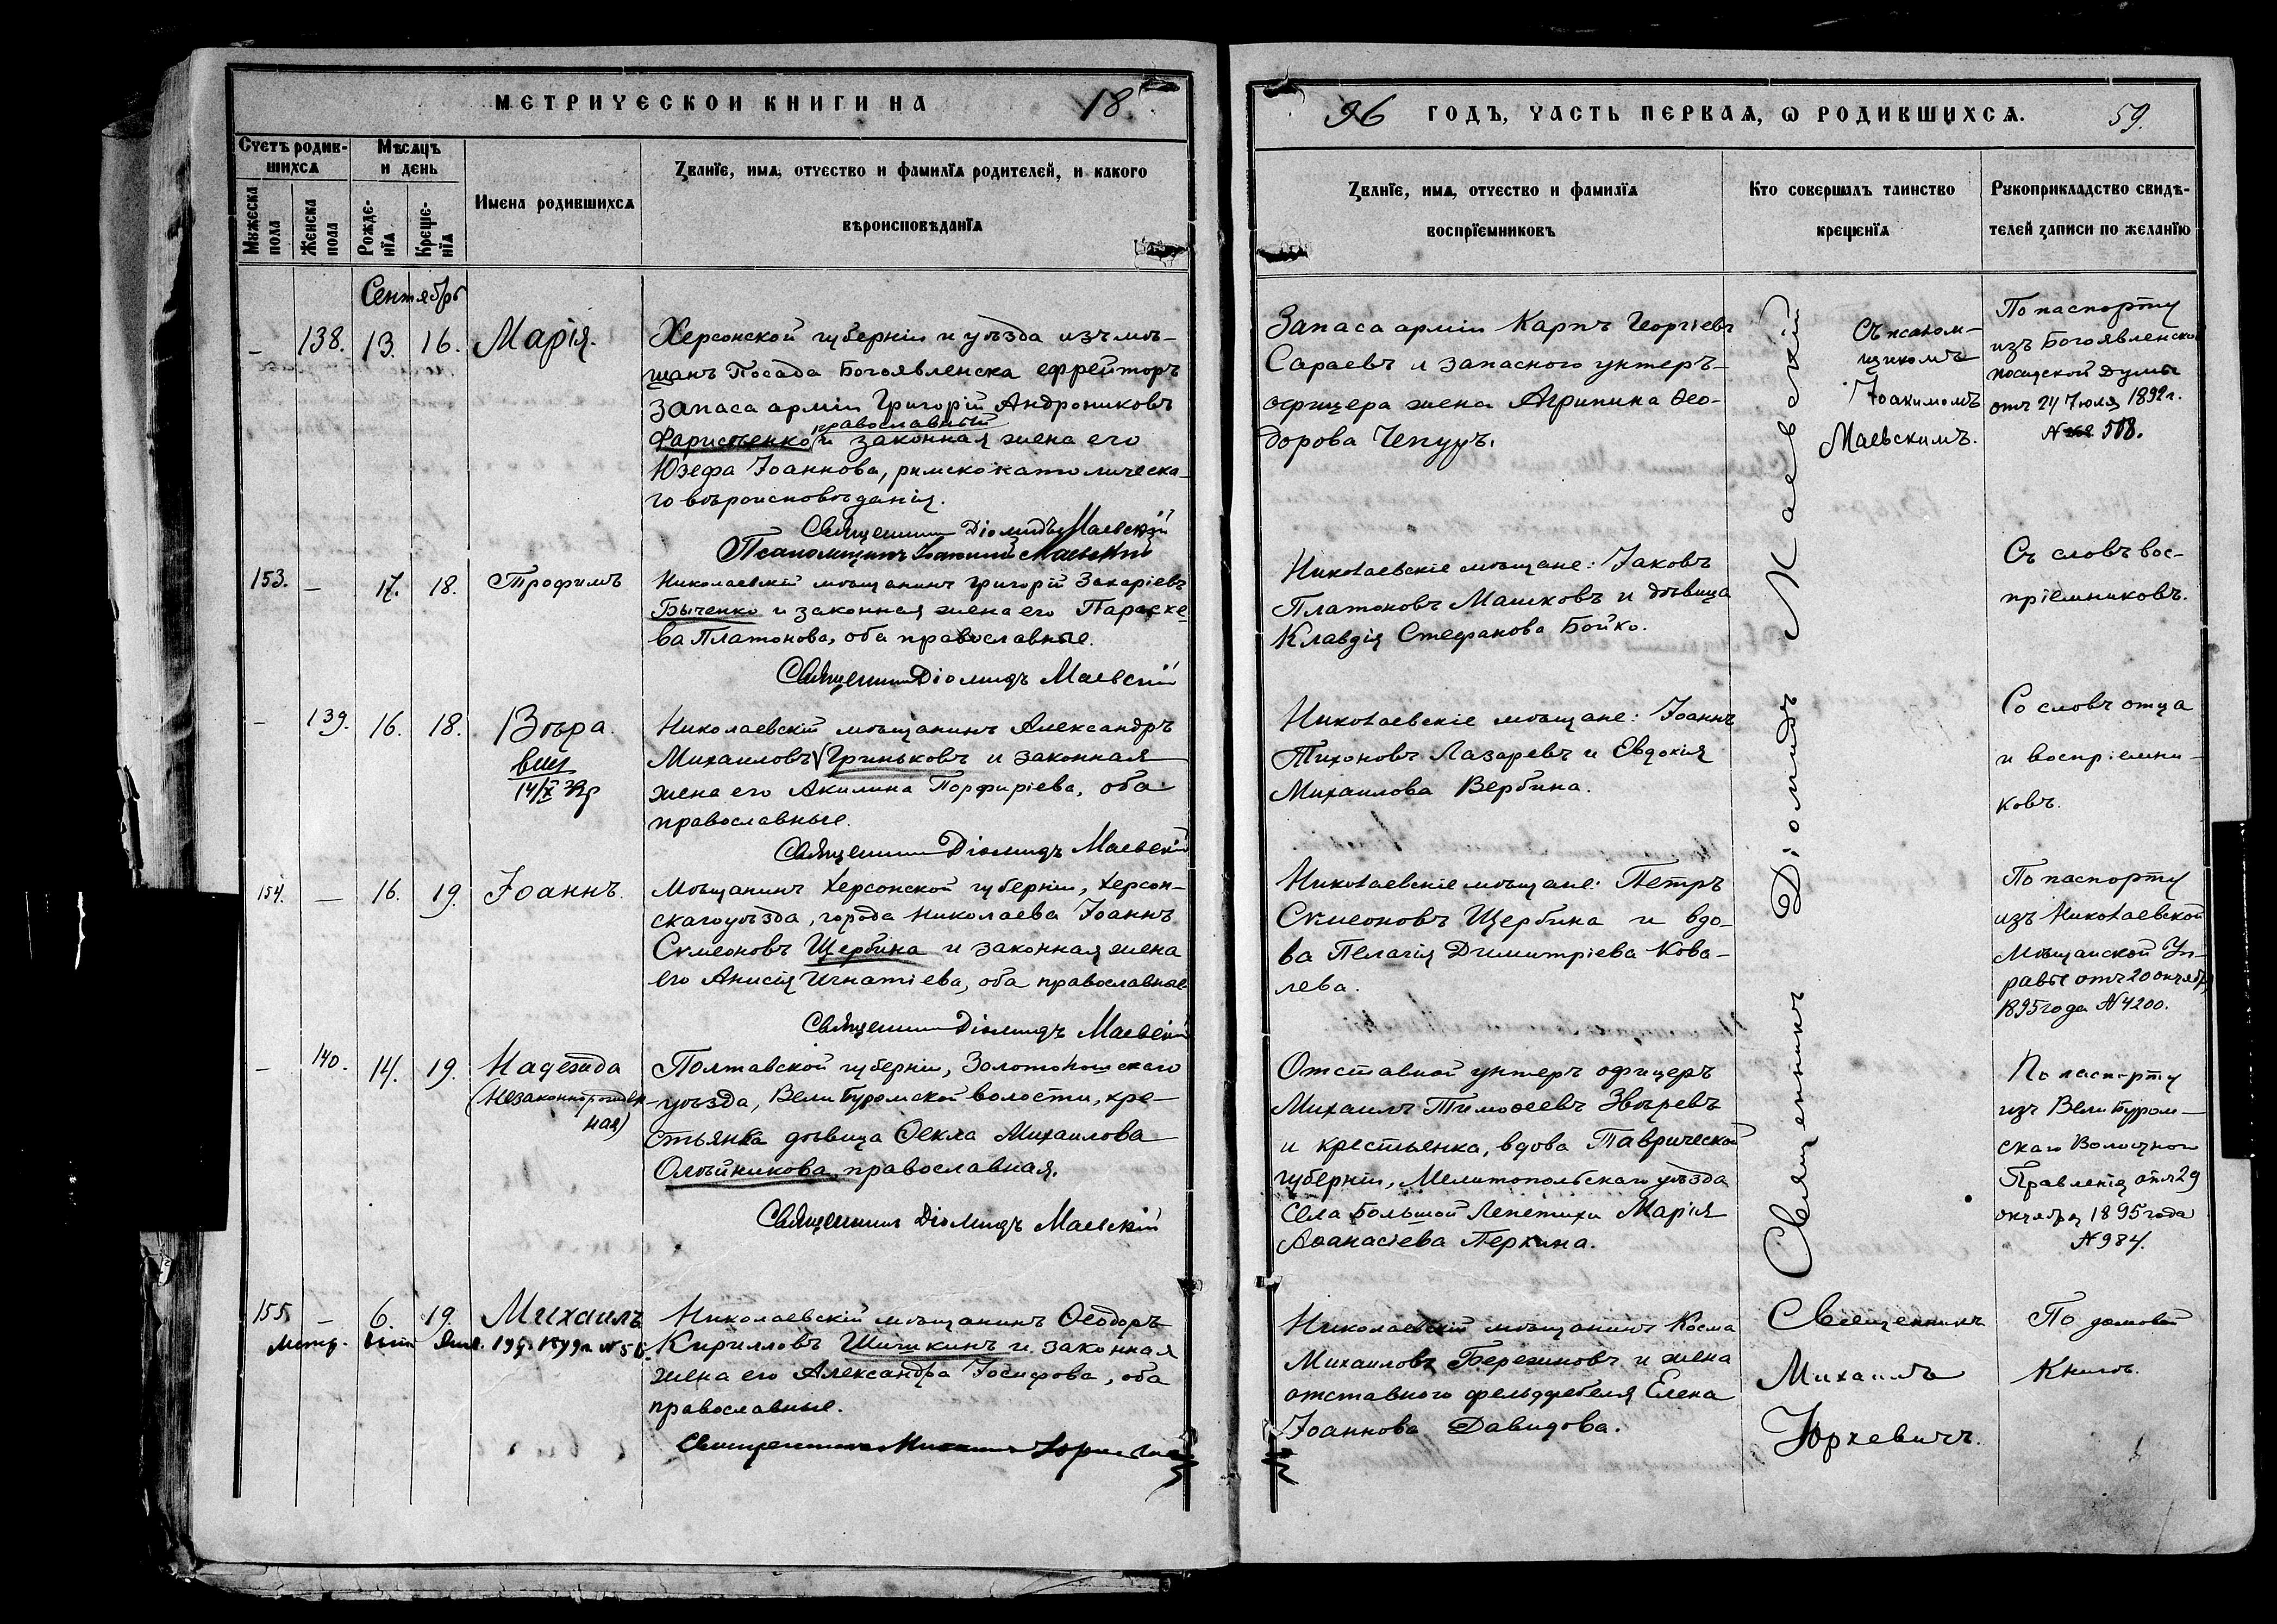 МЕТРИЧЕСКОЙ КНИГИ НА 18
96 ГОДЪ, ЧАСТЬ ПЕРВАѦ, Ѡ РОДИВШИХСѦ. 59.
Счетъ родив-
шихсѧ
Мужеска
пола
Женска
пола
Мѣсѧцъ
и день
Рожде-
нїѧ
Креще-
нїѧ
Имена родившихсѧ
Званїе, имѧ, отчество и фамилїѧ родителей, и какого
вѣроисповѣданїѧ
Званїе, имѧ, отчество и фамилїѧ
воспрїемниковъ
Кто совершалъ таинство
крещенїѧ
Рукоприкладство свидѣ-
телей записи по желанїю
Сентябрь
– 138. 13. 16. Марія.
Херсонской губерніи и уѣзда изъ мѣ-
щанъ Посада Богоявленска ефрейторъ
запаса арміи Григорій Андрониковъ
православный
Фарисѣенко и законная жена его
Юзефа Іоаннова, римско католическа-
го вѣроисповѣданія.
Священникъ Діомидъ Маевскій
Псаломщикъ Іоакимъ Маевскій
Запаса арміи Карпъ Георгіевъ
Сараевъ и запаснаго унтеръ-
офицера жена Агрипина Ѳео-
дорова Чепуръ.
Съ псалом-
щикомъ
Іоакимомъ
Маевскимъ.
По паспорту
изъ Богоявленской
посадской Думы
отъ 24 Іюля 1892 г.
N 508.
153. – 17. 18. Трофимъ
Николаевскій мѣщанинъ Григорій Захаріевъ
Быченко и законная жена его Параске-
ва Платонова, оба православные.
Священникъ Діомидъ Маевскій
Николаевскіе мѣщане: Іаковъ
Платоновъ Машковъ и дѣвица
Клавдія Стефанова Бойко.
Съ словъ вос-
пріемниковъ.
– 139. 16. 18. Вѣра.
14/X
Николаевскій мѣщанинъ Александръ
Михаиловъ Гриньковъ и законная
жена его Акилина Порфиріева, оба
православные.
Священникъ Діомидъ Маевскій
Николаевскіе мѣщане: Іоаннъ
Тихоновъ Лазаревъ и Евдокія
Михаилова Вербина.
Со словъ отца
и воспріемни-
ковъ.
154. – 16. 19. Іоаннъ.
Мѣщанинъ Херсонской губерніи, Херсон-
скаго уѣзда, города Николаева Іоаннъ
Сѵмеоновъ Щербина и законная жена
его Анисія Игнатіева, оба православные
Священникъ Діомидъ Маевскій
Николаевскіе мѣщане: Петръ
Сѵмеоновъ Щербина и вдо-
ва Пелагія Димитріева Кова-
лева.
По паспорту
изъ Николаевской
Мѣщанской Уп-
равы отъ 20 октября
1895 года N 4200.
– 140. 14. 19. Надежда
(Незаконнорожден-
ная)
Полтавской губерніи, Золотоношскаго
уѣзда, Вели Буромской волости, кре-
стьянка дѣвица Ѳекла Михаилова
Олѣйникова, православная.
Священникъ Діомидъ Маевскій
Отставной унтеръ офицеръ
Михаилъ Тимоѳеевъ Звѣревъ
и крестьянка, вдова Таврической
губерніи, Мелитопольскаго уѣзда
села Большой Лепетихи Марія
Аѳанасіева Перхина.
По паспорту
изъ Вели Буром-
скаго Волостного
Правленія отъ 29
октября 1895 года
N 984.
Священникъ Діомидъ Маевскій
155. – 6. 19. Михаилъ
Метр. 1899 г. N 56.
Николаевскій мѣщанинъ Ѳеодоръ
Кирилловъ Шишкинъ и законная
жена его Александра Іосифова, оба
православные.
Священникъ Михаилъ Юркевичъ
Николаевскій мѣщанинъ Косма
Михаиловъ Бережновъ и жена
отставного фельдфебеля Елена
Іоаннова Давидова.
Священникъ
Михаилъ
Юркевичъ.
По домовой
Книгѣ.